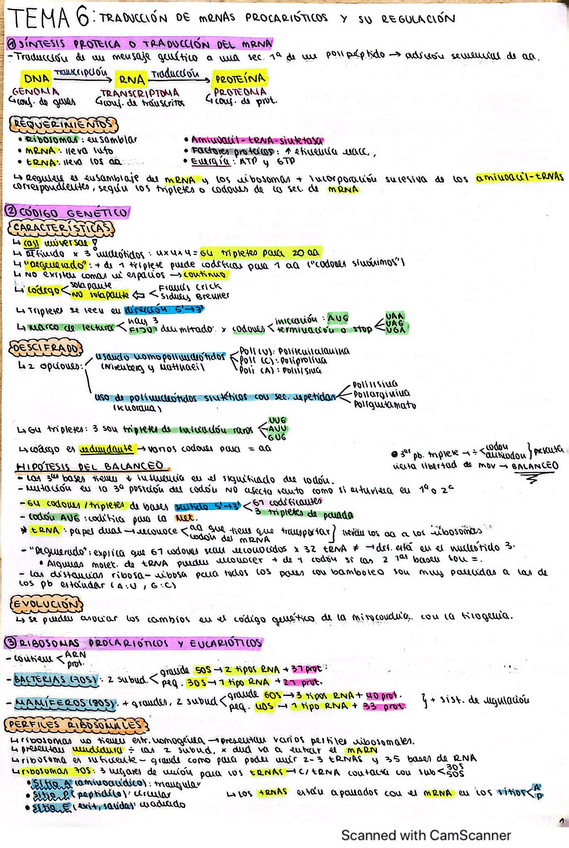 TEMA 6: TRADUCCIÓN DE mRNAS PROCARIÓTICOS Y SU REGULACIÓN
① SÍNTESIS PROTEICA O TRADUCCIÓN DEL mRNA
- Traducción de un mensaje genético a una sec. 1ª de un polipéptido → adición secuencial de aa.
DNA transcripción → RNA Traducción → PROTEÍNA
GENOMA TRANSCRIPTOMA PROTEOMA
↳ conj. de genes ↳ conj. de transcritos ↳ conj. de prot.
REQUERIMIENTOS
• Ribosomas: ensamblar • Aminoacil-tRNA-sintetasa
• mRNA: lleva info • Factores proteicos: ↑ eficiencia
• tRNA: lleva los aa • Energía: ATP y GTP
↳ Requiere el ensamblaje del mRNA y los ribosomas + incorporación sucesiva de los aminoacil-tRNAs
correspondientes, según los tripletes o codones de la sec. de mRNA
② CÓDIGO GENÉTICO
CARACTERÍSTICAS
↳ casi universal
x 3 nucleótidos: 4x4x4 = 64 tripletes para 20 aa
↳ "Degenerado": + de 1 triplete puede codificar para 1 aa ("codones sinónimos")
↳ NO existen comas ni espacios → continuo
↳ código < solapante
no solapante ⇐ < Francis Crick
Sidney Brenner
↳ Tripletes se leen en dirección 5'→3'
↳ Marco de lectura < hay 3
FIJO delimitado x codones < iniciación: AUG
terminación o stop < UAA
UAG
UGA
DESCIFRADO
↳ 2 opciones: usando homopolinucleótidos < Poli (U): Polifenilalanina
(Nirenberg y Matthaei) Poli (C): Poliprolina
Poli (A): Polilisina
uso de polinucleótidos sintéticos con sec. repetidas < Polilisina
(Khorana) Poliarginina
Poliglutamato
↳ 64 tripletes: 3 son tripletes de iniciación raros < UUG
AUU
GUG
↳ código es redundante → varios codones para = aa
HIPÓTESIS DEL BALANCEO
- Las 3ªs bases tienen ↓ influencia en el significado de codón.
- Mutación en la 3ª posición del codón no afecta tanto como si estuviera en 1ª o 2ª
• 3er pb. triplete → ÷ < codón
anticodón
cierta libertad de mov → BALANCEO
- 64 codones / tripletes de bases sentido 5'→3' < 61 codificantes
3 tripletes de parada
- codón AUG: codifica para la Met.
* tRNA: papel dual → reconoce < aa que tiene que transportar
codón del mRNA
llevan los aa a los ribosomas
- "Degenerado": explica que 61 codones sean reconocidos x 32 tRNA ≠ → dif. está en el nucleótido 3.
• Algunas moléc. de tRNA pueden reconocer + de 1 codón si las 2 1ªs bases son =.
- las distancias ribosa-ribosa para todos los pares con bamboleo son muy parecidas a las de
los pb estándar (A:U, G:C)
EVOLUCIÓN
↳ se pueden asociar los cambios en el código genético de la mitocondria, con la filogenia.
③ RIBOSOMAS PROCARIÓTICOS Y EUCARIÓTICOS
- contiene < ARN
prot.
- BACTERIAS (70S): 2 subud. < grande 50S → 2 tipos RNA + 37 prot.
peq. 30S → 1 tipo RNA + 21 prot.
- MAMÍFEROS (80S): + grandes, 2 subud < grande 60S → 3 tipos RNA + 40 prot.
peq. 40S → 1 tipo RNA + 33 prot.
} + sist. de regulación
PERFILES RIBOSOMALES
↳ ribosomas no tienen estr. homogénea → presentan varios perfiles ribosomales.
↳ presentan hendidura ÷ las 2 subud, x dnd va a entrar el mARN
↳ ribosoma es suficiente- grande como para poder unir 2-3 tRNAs y 35 bases de RNA
↳ ribosomas 70S: 3 lugares de unión para los tRNAs → c/ tRNA contacta con sub < 30S
50S
• Sitio A (aminoacídico): triangular
• Sitio P (peptídico): circular
• Sitio E (exit, salida): cuadrado
↳ los tRNAs están apareados con el mRNA en los sitios < A
P
Scanned with CamScanner